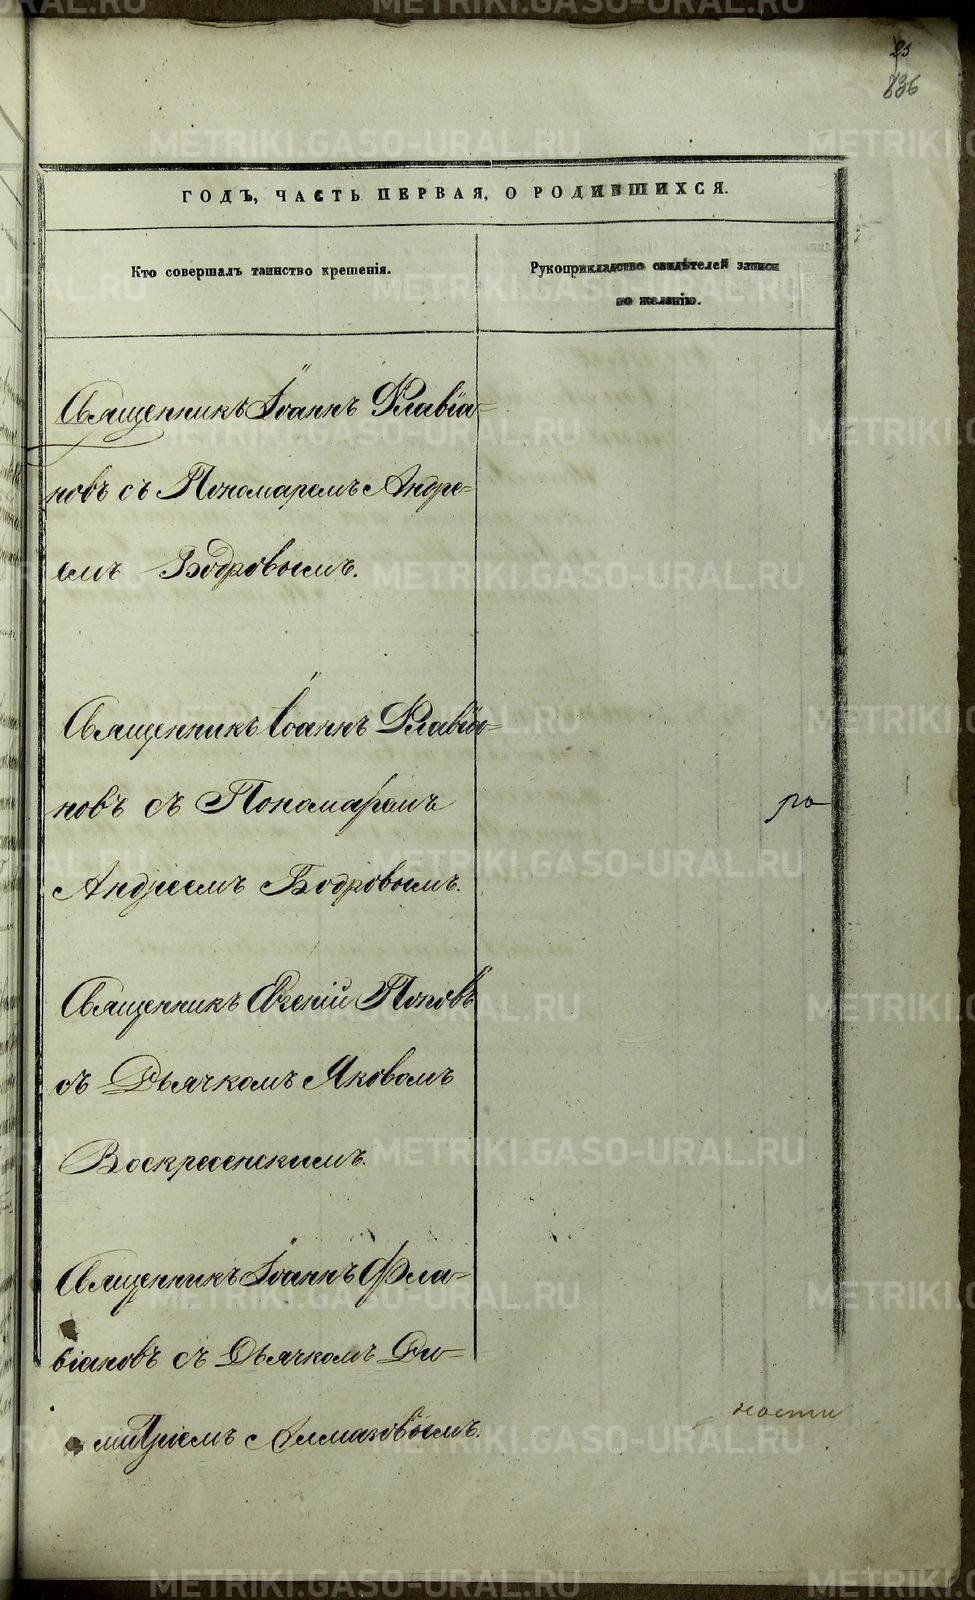 25
836
ГОДЪ, ЧАСТЬ ПЕРВАЯ, О РОДИВШИХСЯ.
Кто совершалъ таинство крещенія.
Рукоприкладство свидѣтелей записи
по желанію.
Священникъ Іоаннъ Флавіа-
новъ съ Пономаремъ Андре-
емъ Бодровымъ.
Священникъ Іоаннъ Флавіа-
новъ съ Пономаремъ
ро
Андреемъ Бодровымъ.
Священникъ Евгеній Поповъ
съ Дьячкомъ Яковомъ
Воскресенскимъ.
Священникъ Іоаннъ Фла-
віановъ съ Дьячкомъ Ди-
митріемъ Алмазовымъ.
ности
METRIKI.GASO-URAL.RU